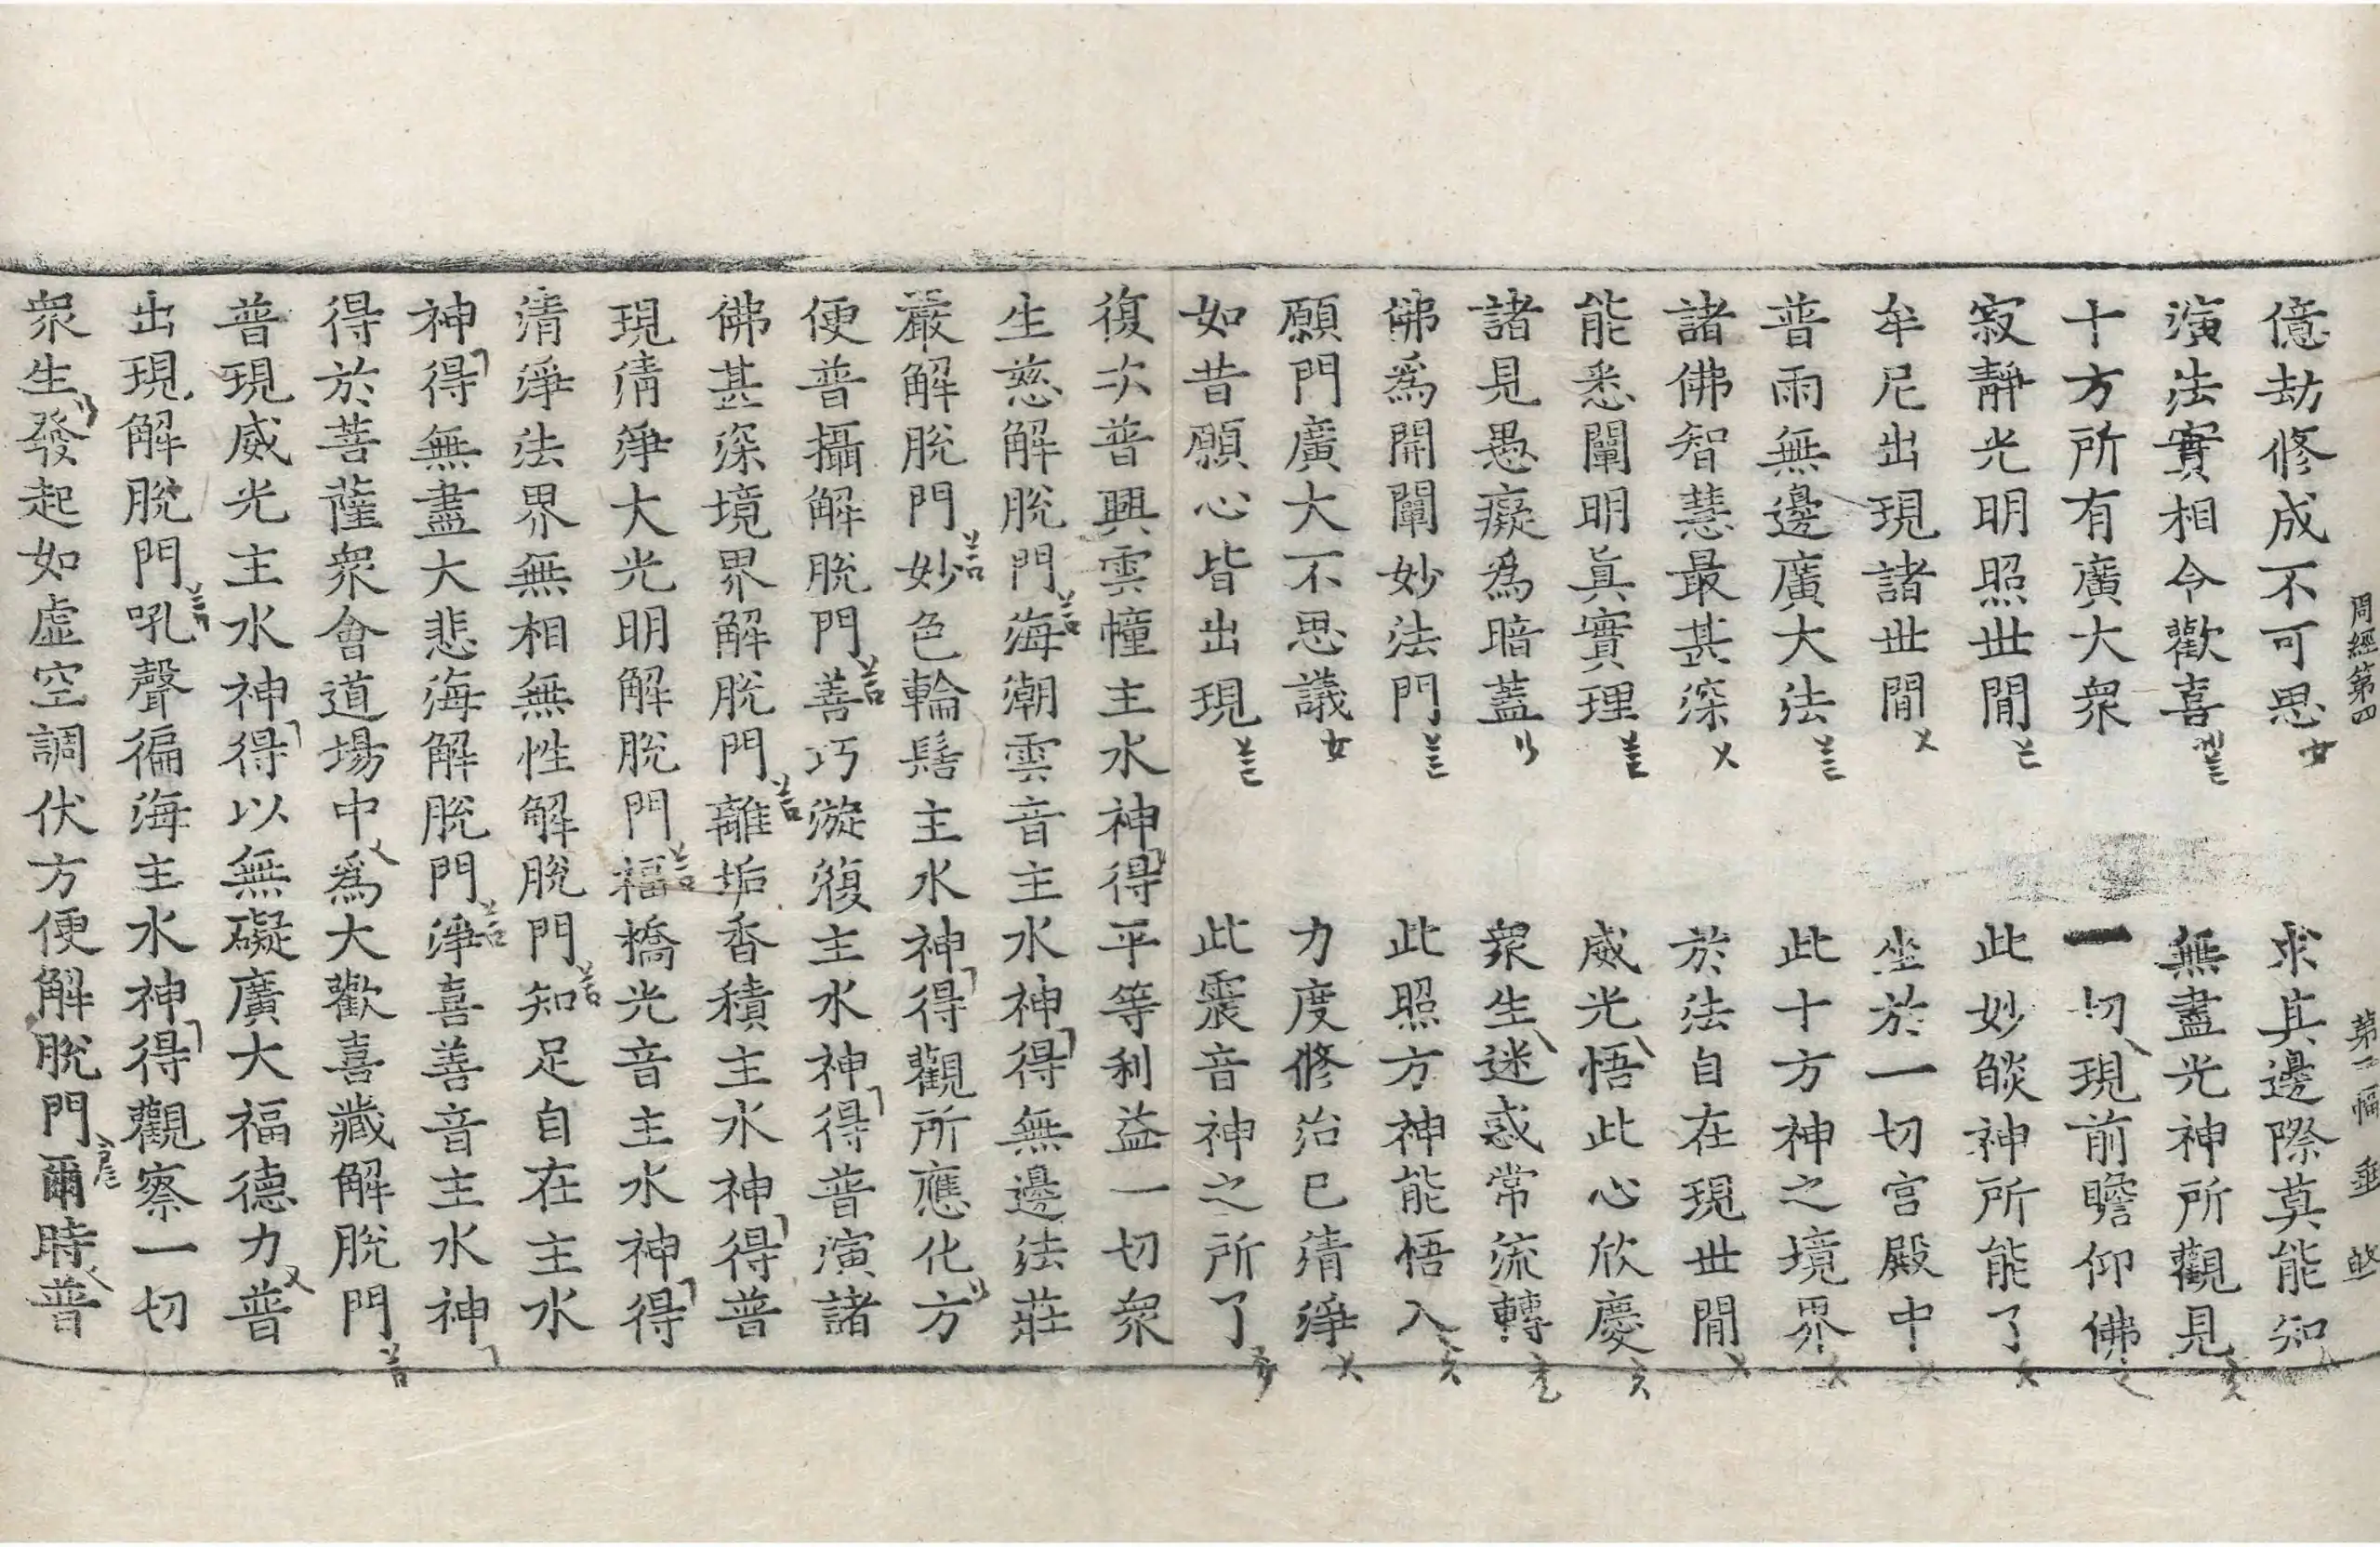 周經第四
億劫修成不可思 求其邊際莫能知
演法實相令歡喜 無盡光神所觀見
十方所有廣大衆 一切現前瞻仰佛
寂靜光明照世間 此妙燄神所能了
牟尼出現諸世間 坐於一切宮殿中
普雨無邊廣大法 此十方神之境界
諸佛智慧最甚深 於法自在現世間
能悉闡明眞實理 威光悟此心欣慶
諸見愚癡爲暗蓋 衆生迷惑常流轉
佛爲開闡妙法門 此照方神能悟入
願門廣大不思議 力度修治已清淨
如昔願心皆出現 此震音神之所了
復次普興雲幢主水神得平等利益一切衆
生慈解脫門海潮雲音主水神得無邊法莊
嚴解脫門妙色輪髻主水神得觀所應化方
便普攝解脫門善巧漩澓主水神得普演諸
佛甚深境界解脫門離垢香積主水神得普
現清淨大光明解脫門福橋光音主水神得
清淨法界無相無性解脫門知足自在主水
神得無盡大悲海解脫門淨喜善音主水神
得於菩薩衆會道場中爲大歡喜藏解脫門
普現威光主水神得以無礙廣大福德力普
出現解脫門吼聲徧海主水神得觀察一切
衆生發起如虛空調伏方便解脫門爾時普